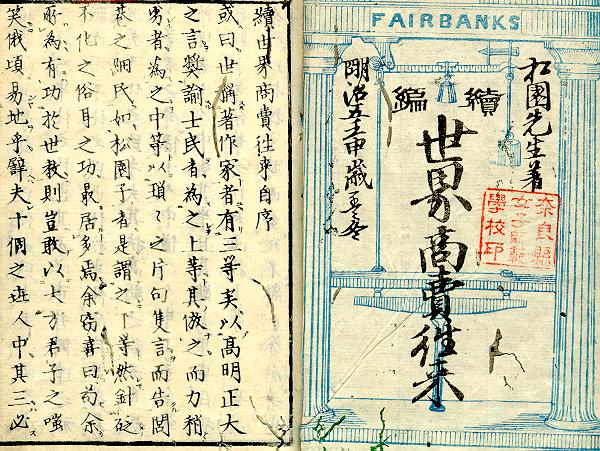 FAIRBANKS
松園先生著
續編
世界商賣往来
明治五壬申歳孟冬
奈良縣
女子師範
學校印
續世界商賣往来自序
或曰世稱著作家者有三等矣以高明正大
之言奬諭士民者為之上等其倣之而力稍
劣者為之中等以瑣々之片句隻言而告閭
巷之細民如松園子者是謂之下等然針砭
不化之俗耳之功最居多焉余竊喜曰苟余
所為有功於世教則豈敢以大方君子之嗤
笑俄頃易地乎夫十個之人中其三必